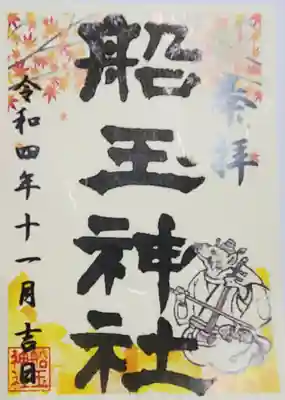 奉拝
船玉神社
令和四年十一月吉日